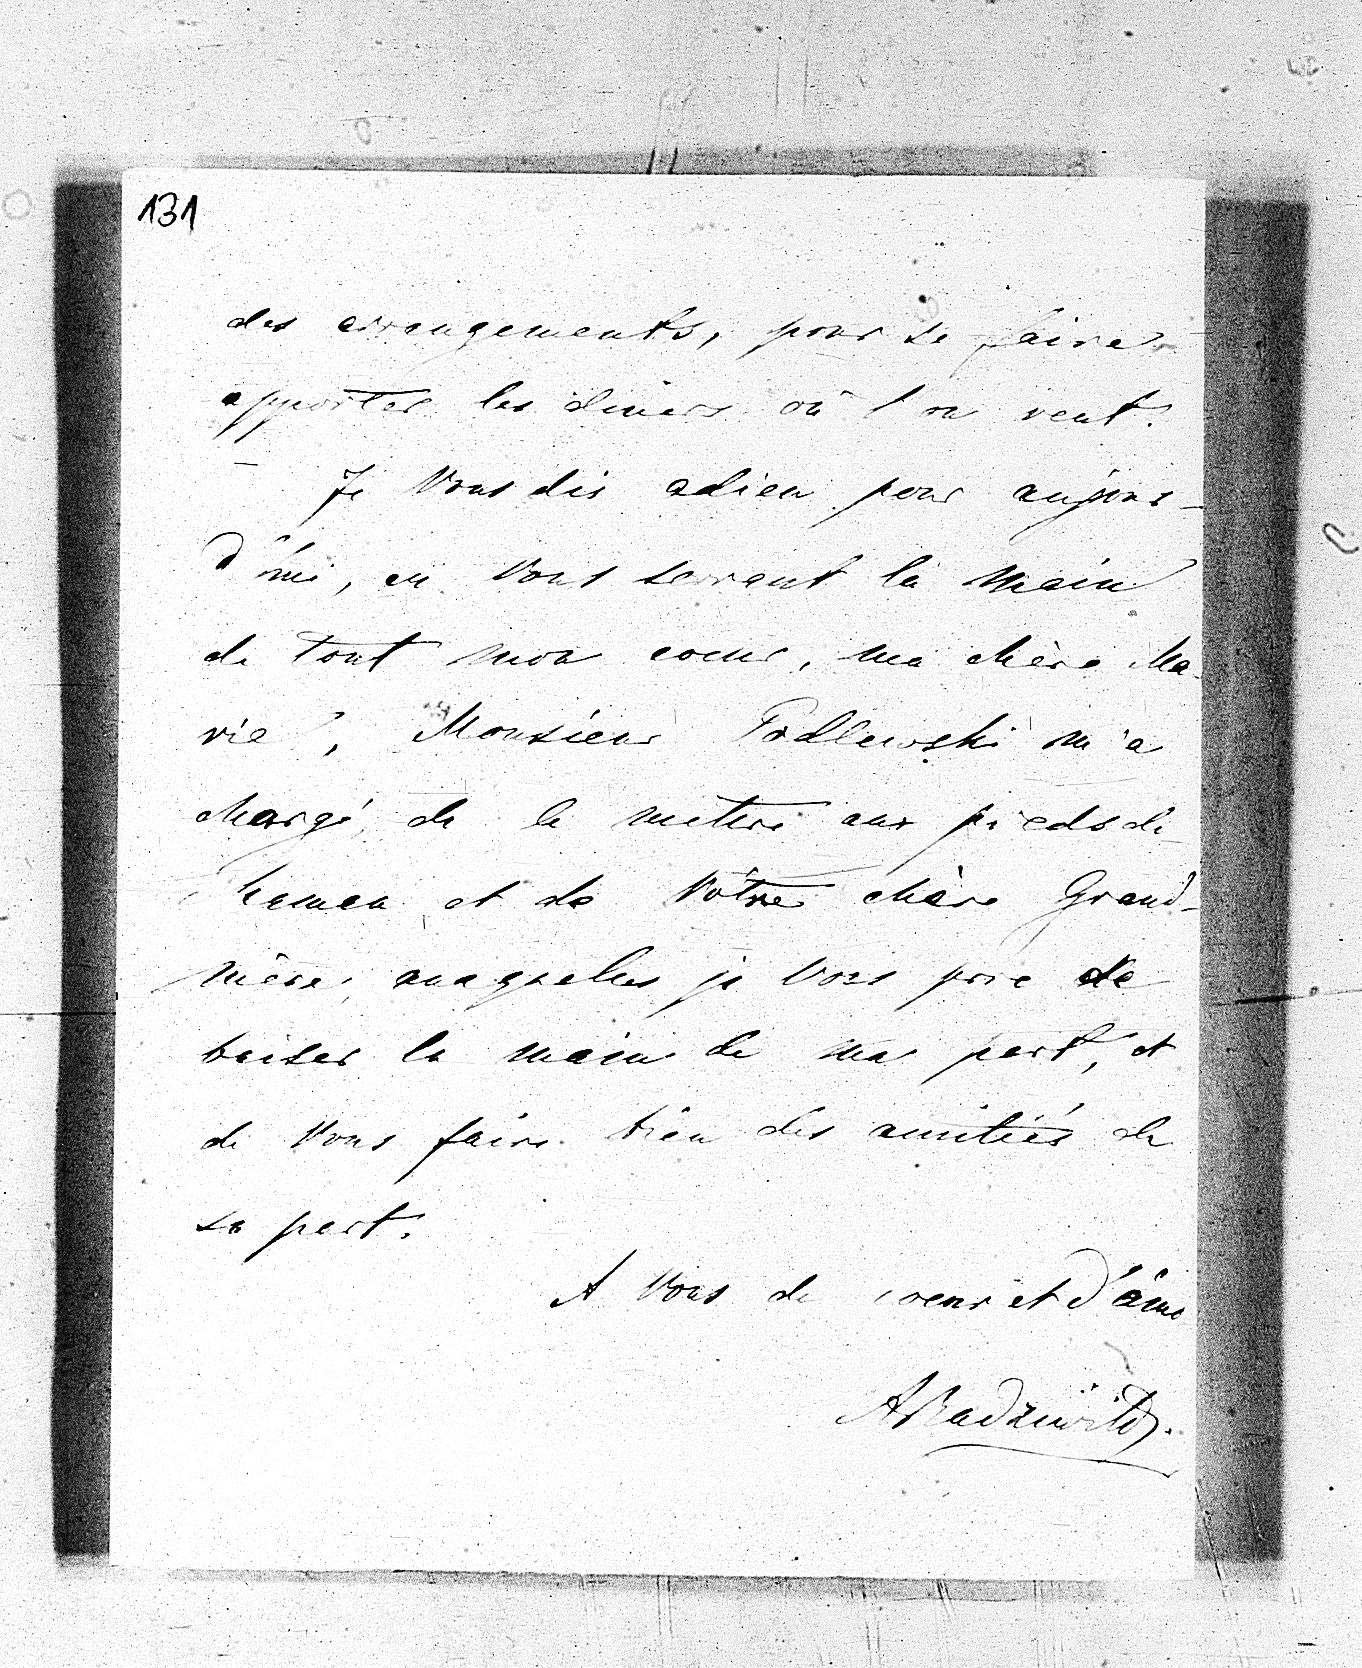 131
des arrangements, pour se faire
apporter les diners où l'on veut.
– Je Vous dis adieu pour aujour-
d'hui, en Vous serrant la main
de tout mon coeur, ma chère Ma-
rie, Monsieur Podlewski m'a
chargé de le mettre aux pieds de
Maman et de Vôtre chère Grand-
mère, auxquelles je Vous prie de
baiser la main de ma part, et
de Vous faire bien des amitiés de
sa part.
A Vous de coeur et d'âme
ARadziwiłł.